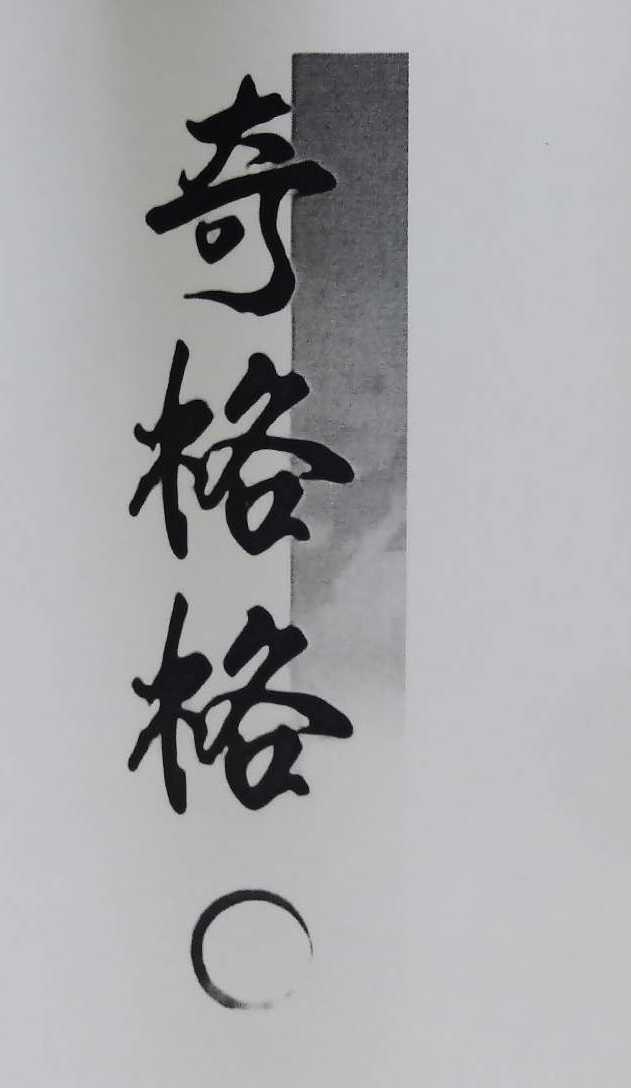 奇格格